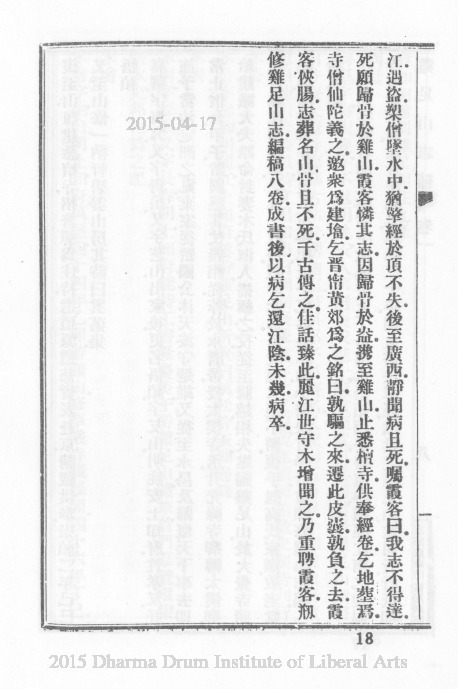 江。遇盜。槊僧墜水中。猶擎經於頂不失。後至廣西。靜聞病且死。囑霞客曰。我志不得達。
死願歸骨於雞山。霞客憐其志。因歸骨於盎。攜至雞山。止悉檀寺。供奉經卷。乞地塟焉。
寺僧仙陀義之。邀衆爲建墖。乞晋甯黃郊爲之銘曰。孰驅之來。遷此皮囊。孰負之去。霞
客俠腸。志葬名山。骨且不死。千古傳之佳話臻此。麗江世守木增聞之。乃重聘霞客。剏
修雞足山志。編稿八卷。成書後。以病乞還江陰。未幾病卒。
2015-04-17
18
2015 Dharma Drum Institute of Liberal Arts